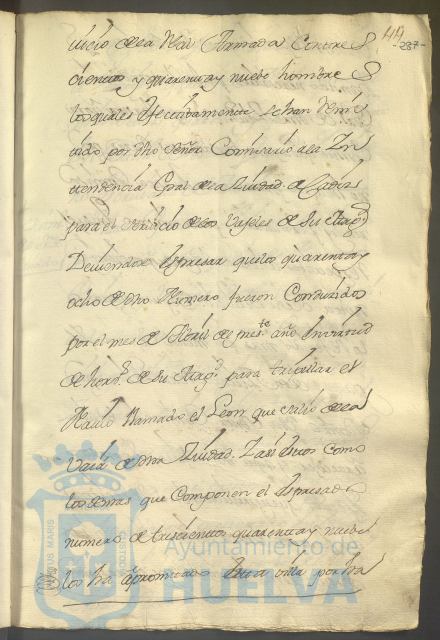 44
-287-
vicio de la Real Armada con tres
cientos y quarenta y nuebe hombres
los quales efectibamente se han remi
tido por dho Señor Comisario a la In
tendencia Gral de la Ziudad de Cadiz
para el servicio de los Vageles de Su Magd
Deviendose espresar que los quarenta y
ocho de dho Numero fueron Conduzidos
por el mes de Abril de preste año en virtud
de horn. de Su Magd para tripular el
Navio llamado el Leon que salio de la
Vaia de dha Ziudad. Y asi estos como
los demas que componen el espresado
numero de trescientos quarenta y nuebe
los ha apromtado esta villa por ha
PORTUS MARIS
CUSTODIA
Ayuntamiento de
HUELVA